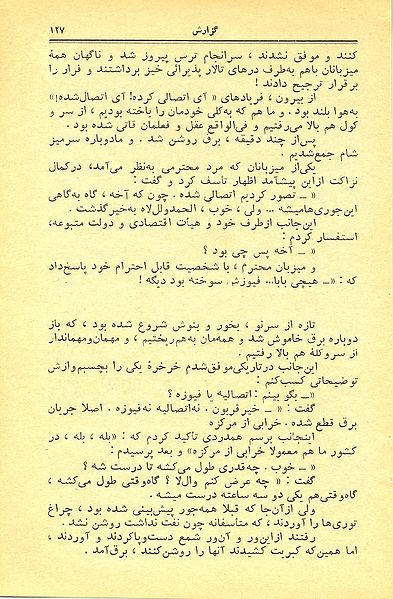 گزارش ۱۲۷
کنند و موفق نشدند ، سرانجام ترس پیروز شد و ناگهان همهٔ
میزبانان باهم به‌طرف درهای تالار پذیرائی خیز برداشتند و فرار را
برقرار ترجیح دادند !
از بیرون ، فریادهای « آی اتصالی کرده! آی اتصال‌شده!»
به‌هوا بلند بود . و ما هم که به‌کلی خودمان را باخته بودیم ، از سر و
کول هم بالا می‌رفتیم و فی‌الواقع عقل و فعلمان قاتی شده بود .
پس‌از چند دقیقه ، برق روشن شد . و مادوباره سرمیز
شام جمع‌شدیم .
یکی‌از میزبانان که مرد محترمی به‌نظر می‌آمد، درکمال
نزاکت ازاین پیشآمد اظهار تأسف کرد و گفت :
« ــ تصور کردیم اتصالی شده . چون که آخه ، گاه به‌گاهی
این‌جوری‌هامیشه ... ولی ، خوب ، الحمدوال‌لاه به‌خیرگذشت .
این‌جانب ازطرف خود و هیأت اقتصادی و دولت متبوعه،
استفسار کردم :
« ــ آخه پس چی بود ؟
و میزبان محترم ، با شخصیت قابل احترام خود پاسخ‌داد
که : «ــ هیچی بابا... فیوزش سوخته بود دیگه !
تازه از سرنو ، بخور و بنوش شروع شده بود ، که باز
دوباره برق خاموش شد و همه‌مان به‌هم‌ریختیم ، و مهمان‌ومهماندار
از سروکلهٔ هم بالا رفتیم .
این‌جانب درتاریکی‌موفق‌شدم خرخرهٔ یکی را بچسبم‌وازش
توضیحاتی کسب‌کنم :
«ــ بگو بینم : اتصالیه یا فیوزه ؟
گفت : « ــ خیرقربون . نه‌اتصالیه نه‌فیوزه . اصلا جریان
برق قطع شده . خرابی از مرکزه
اینجانب برسم همدردی تأکید کردم که : «بله ، بله ، در
کشور ما هم معمولا خرابی از مرکزه» و بعد پرسیدم :
« ــ خوب . چه‌قدری طول می‌کشه تا درست شه ؟
گفت : « ــ چه عرض کنم وال‌لا ؟ گاه‌وقتی طول می‌کشه ،
گاه‌وقتی‌هم یکی دو سه ساعته درست میشه .
ولی ازآن‌جا که قبلا همه‌جور پیش‌بینی شده بود ، چراغ
توری‌ها را آوردند ، که متأسفانه چون نفت نداشت روشن نشد .
رفتند ازاین‌ور و آن‌ور شمع دست‌وپاکردند و آوردند ،
اما همین‌که کبریت کشیدند آنها را روشن‌کنند ، برق‌آمد .